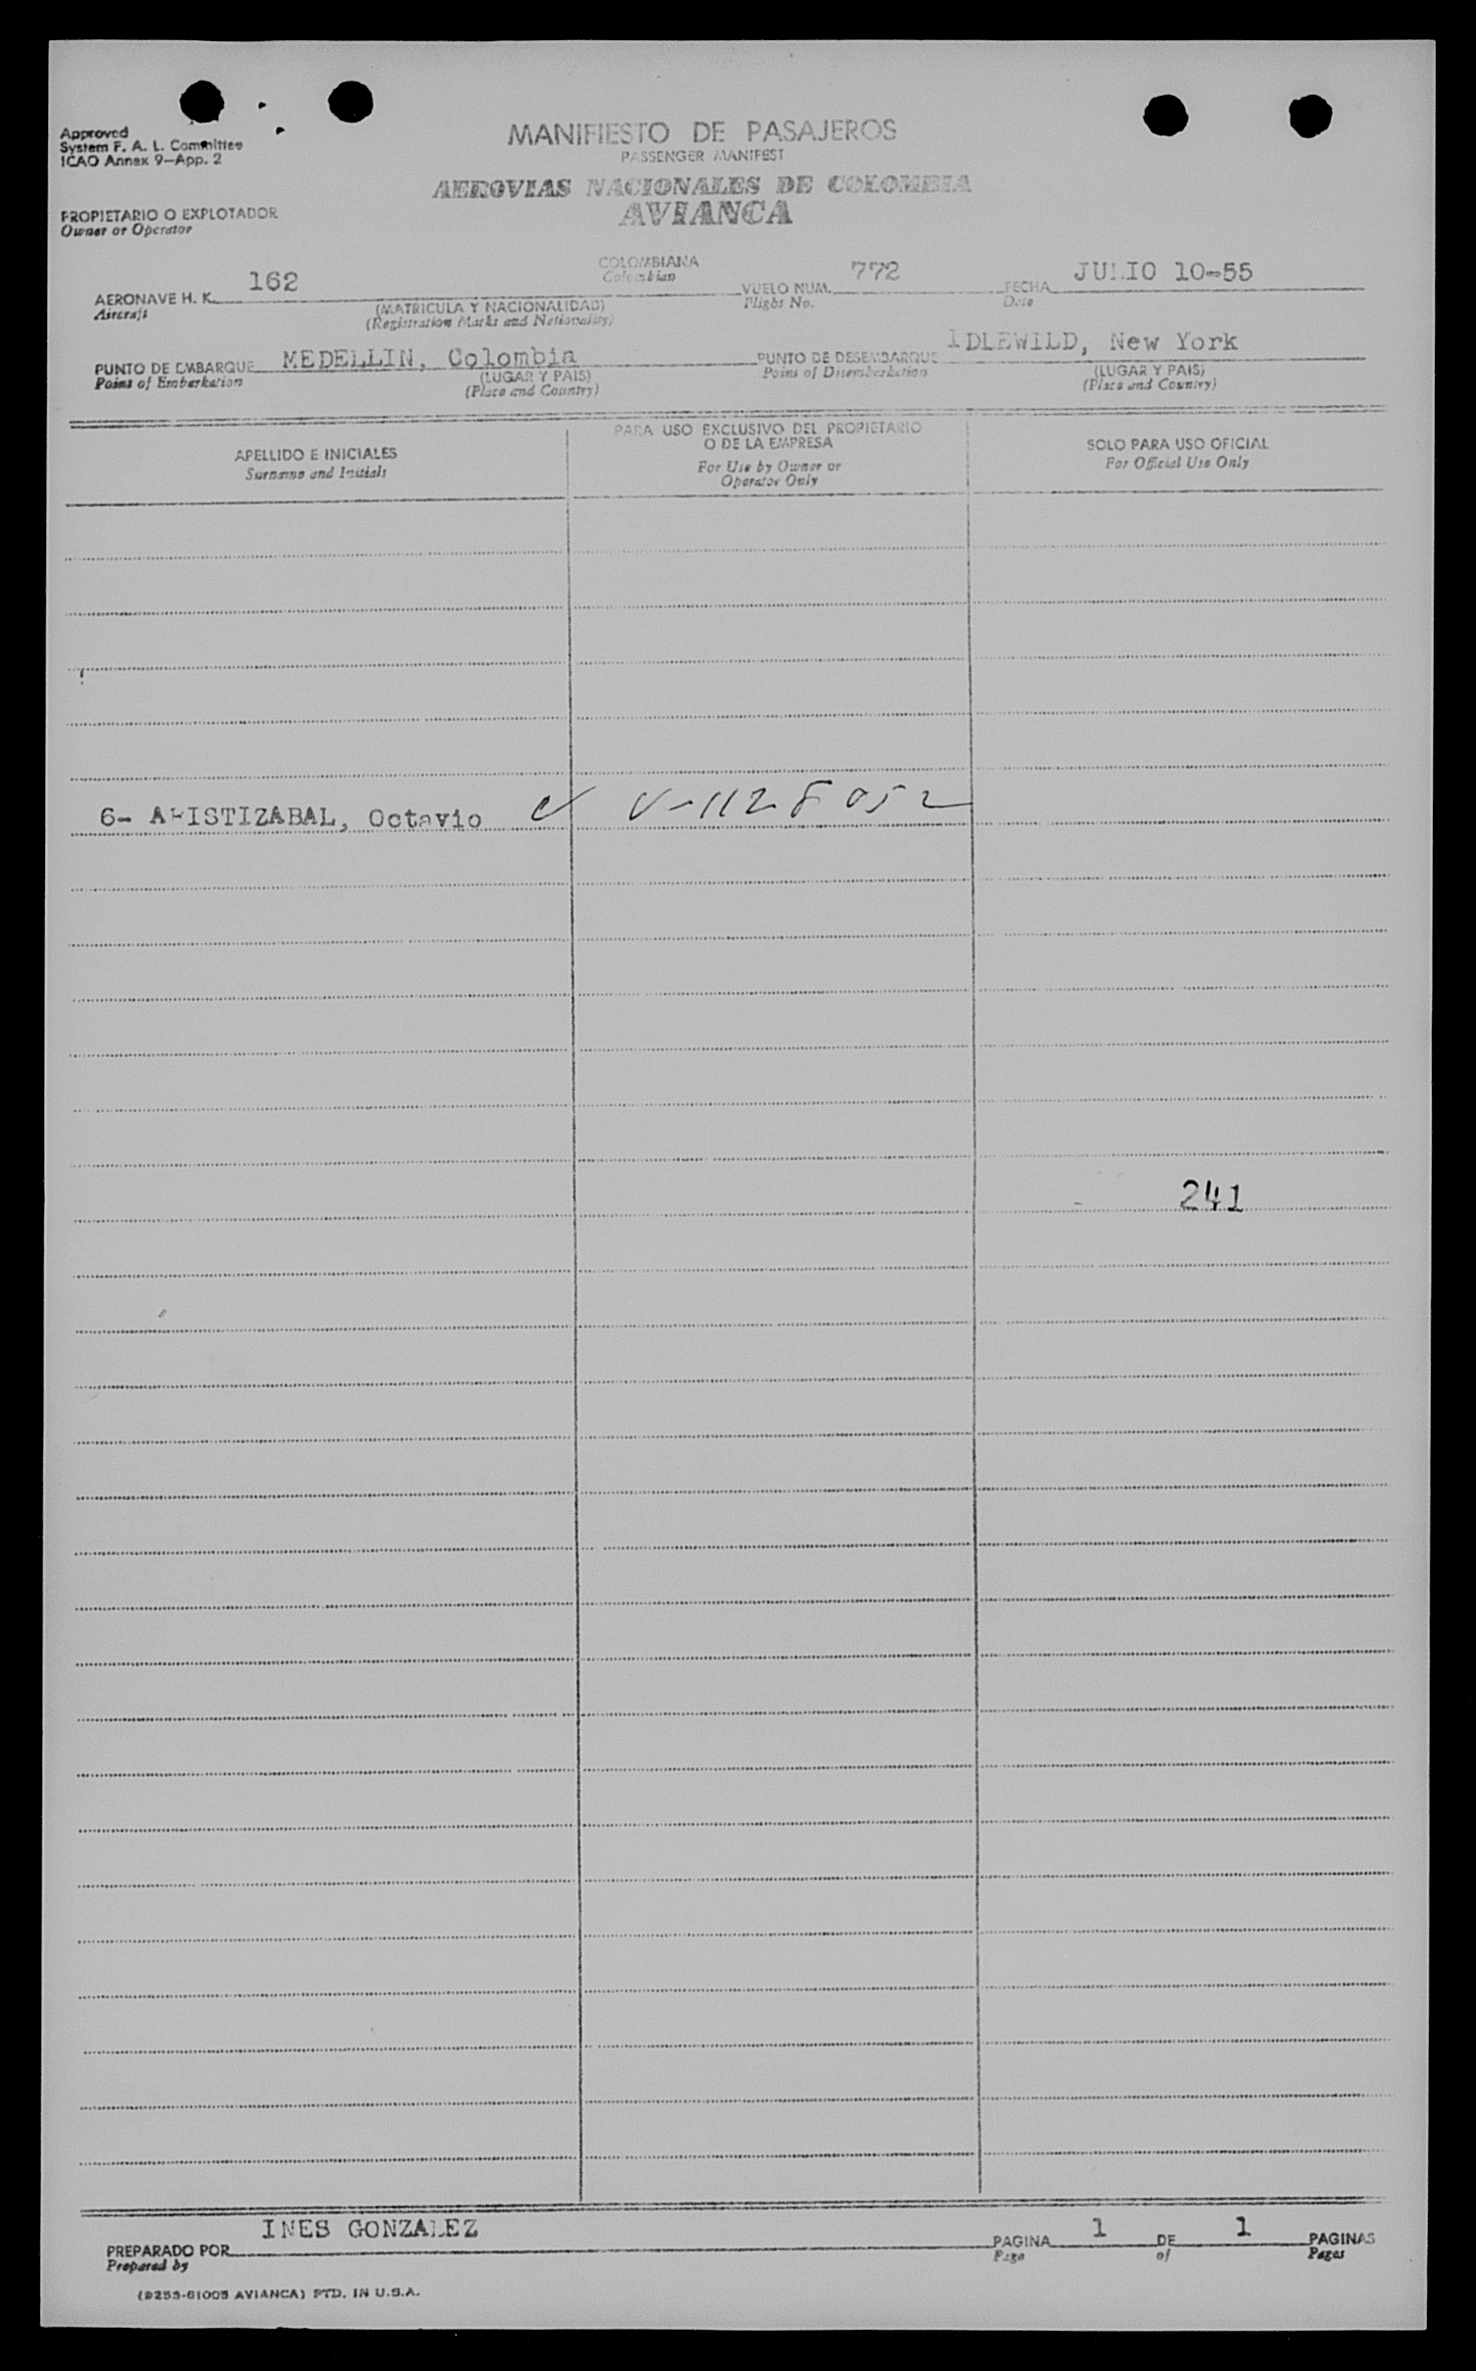 Approved
System F. A. L. Committee
ICAO Annex 9—App. 2
MANIFIESTO DE PASAJEROS
PASSENGER MANIFEST
AEROVIAS NACIONALES DE COLOMBIA
AVIANCA
PROPIETARIO O EXPLOTADOR
Owner or Operator
AERONAVE H. K. 162 COLOMBIANA VUELO NUM. 772 FECHA JULIO 10-55
Aircraft Colombian Flight No. Date
(MATRICULA Y NACIONALIDAD)
(Registration Marks and Nationality)
PUNTO DE EMBARQUE MEDELLIN, Colombia PUNTO DE DESEMBARQUE IDLEWILD, New York
Point of Embarkation (LUGAR Y PAIS) Point of Disembarkation (LUGAR Y PAIS)
(Place and Country) (Place and Country)
APELLIDO E INICIALES
Surname and Initials
PARA USO EXCLUSIVO DEL PROPIETARIO
O DE LA EMPRESA
For Use by Owner or
Operator Only
SOLO PARA USO OFICIAL
For Official Use Only
6- ARISTIZABAL, Octavio V-1128052
241
PREPARADO POR INES GONZALEZ PAGINA 1 DE 1 PAGINAS
Prepared by Page of Pages
(9253-61005 AVIANCA) PTD. IN U.S.A.